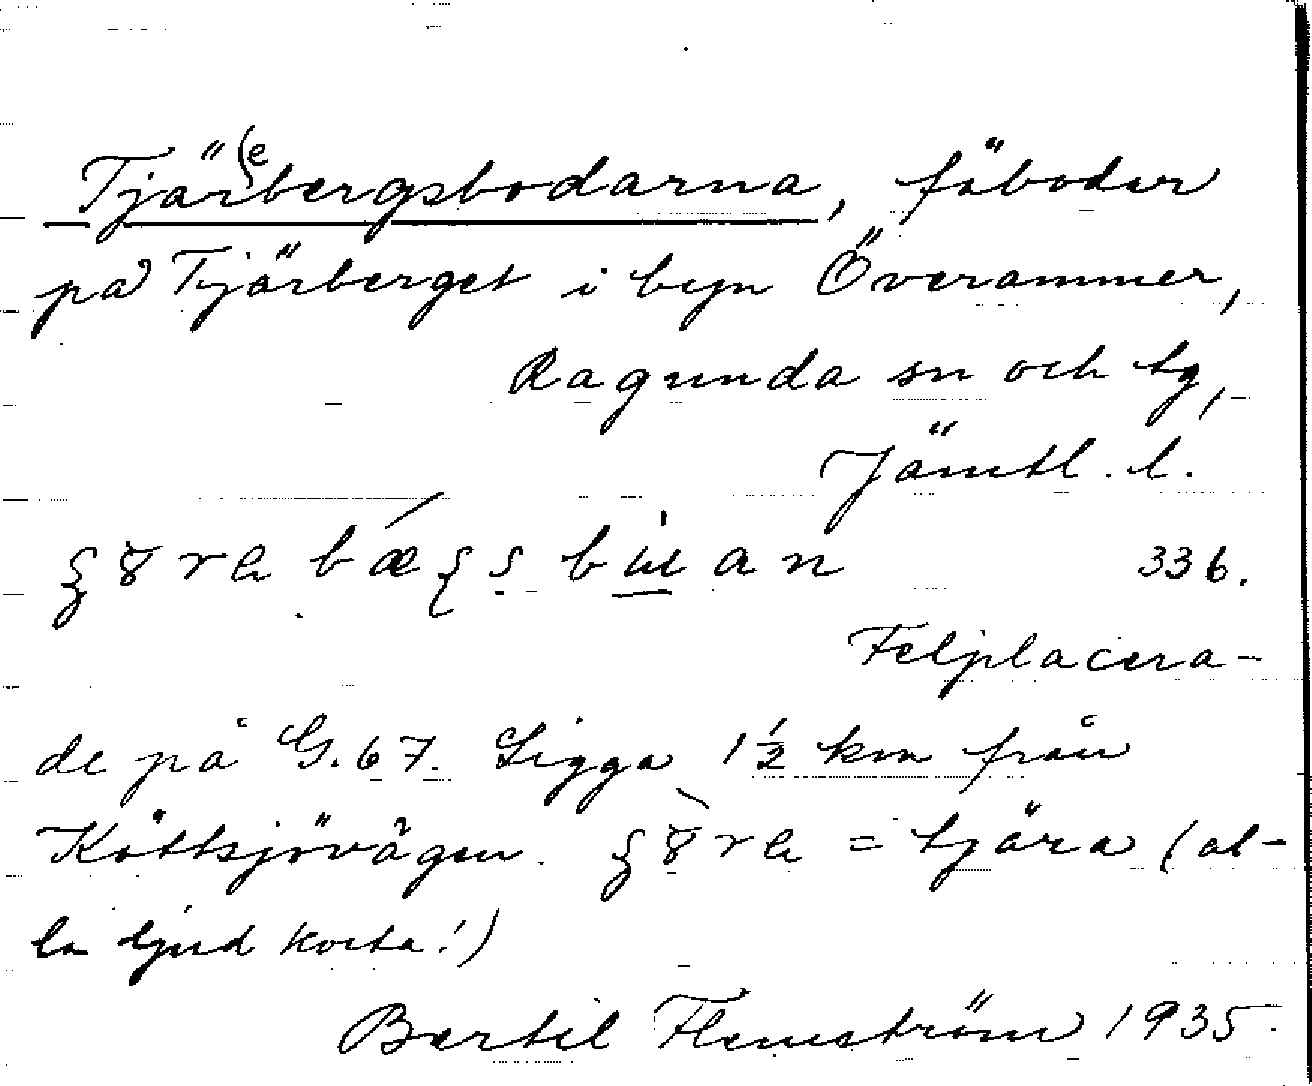 Tjär(e)bergsbodarna, fäbodar
på Tjärberget i byn Överammer,
Ragunda sn och tg,
Jämtl. l.
336.
Felplacera-
de på G. 67. Ligga 1 ½ km från
Köttsjövägen. = tjära (al-
la ljud korta!)
Bertil Flemström 1935.